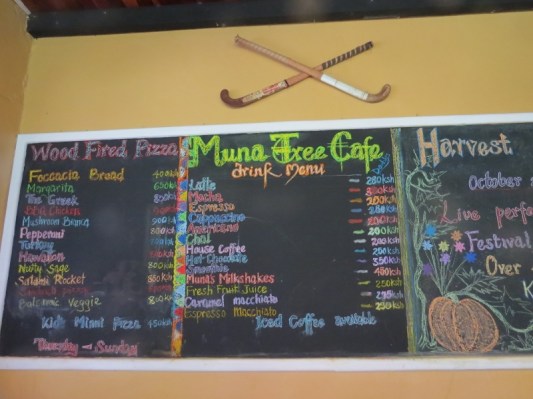 Wood Fired Pizza
Foccacia Bread 400ksh
Margarita 650ksh
The Greek
BBQ Chicken
Mushroom
Pepperoni
Turkey
Hawaiian
Nutty Sage 800ksh
Salami Rocket 850ksh
Balsamic Veggie 800ksh
Kids Mini Pizza 450ksh
Thursday - Sunday
Muna Tree Cafe
drink menu
Latte 280ksh
Mocha
Espresso 200ksh
Cappuccino 280ksh
Americano 200ksh
Chai 200ksh
House Coffee 200ksh
Hot Chocolate 250ksh
Smoothie 350ksh
Muna's Milkshakes 450ksh
Fresh Fruit Juice 250ksh
Caramel macchiato 275ksh
Espresso Macchiato 230ksh
Iced Coffee available
Harvest
October
Live
Festival
Over